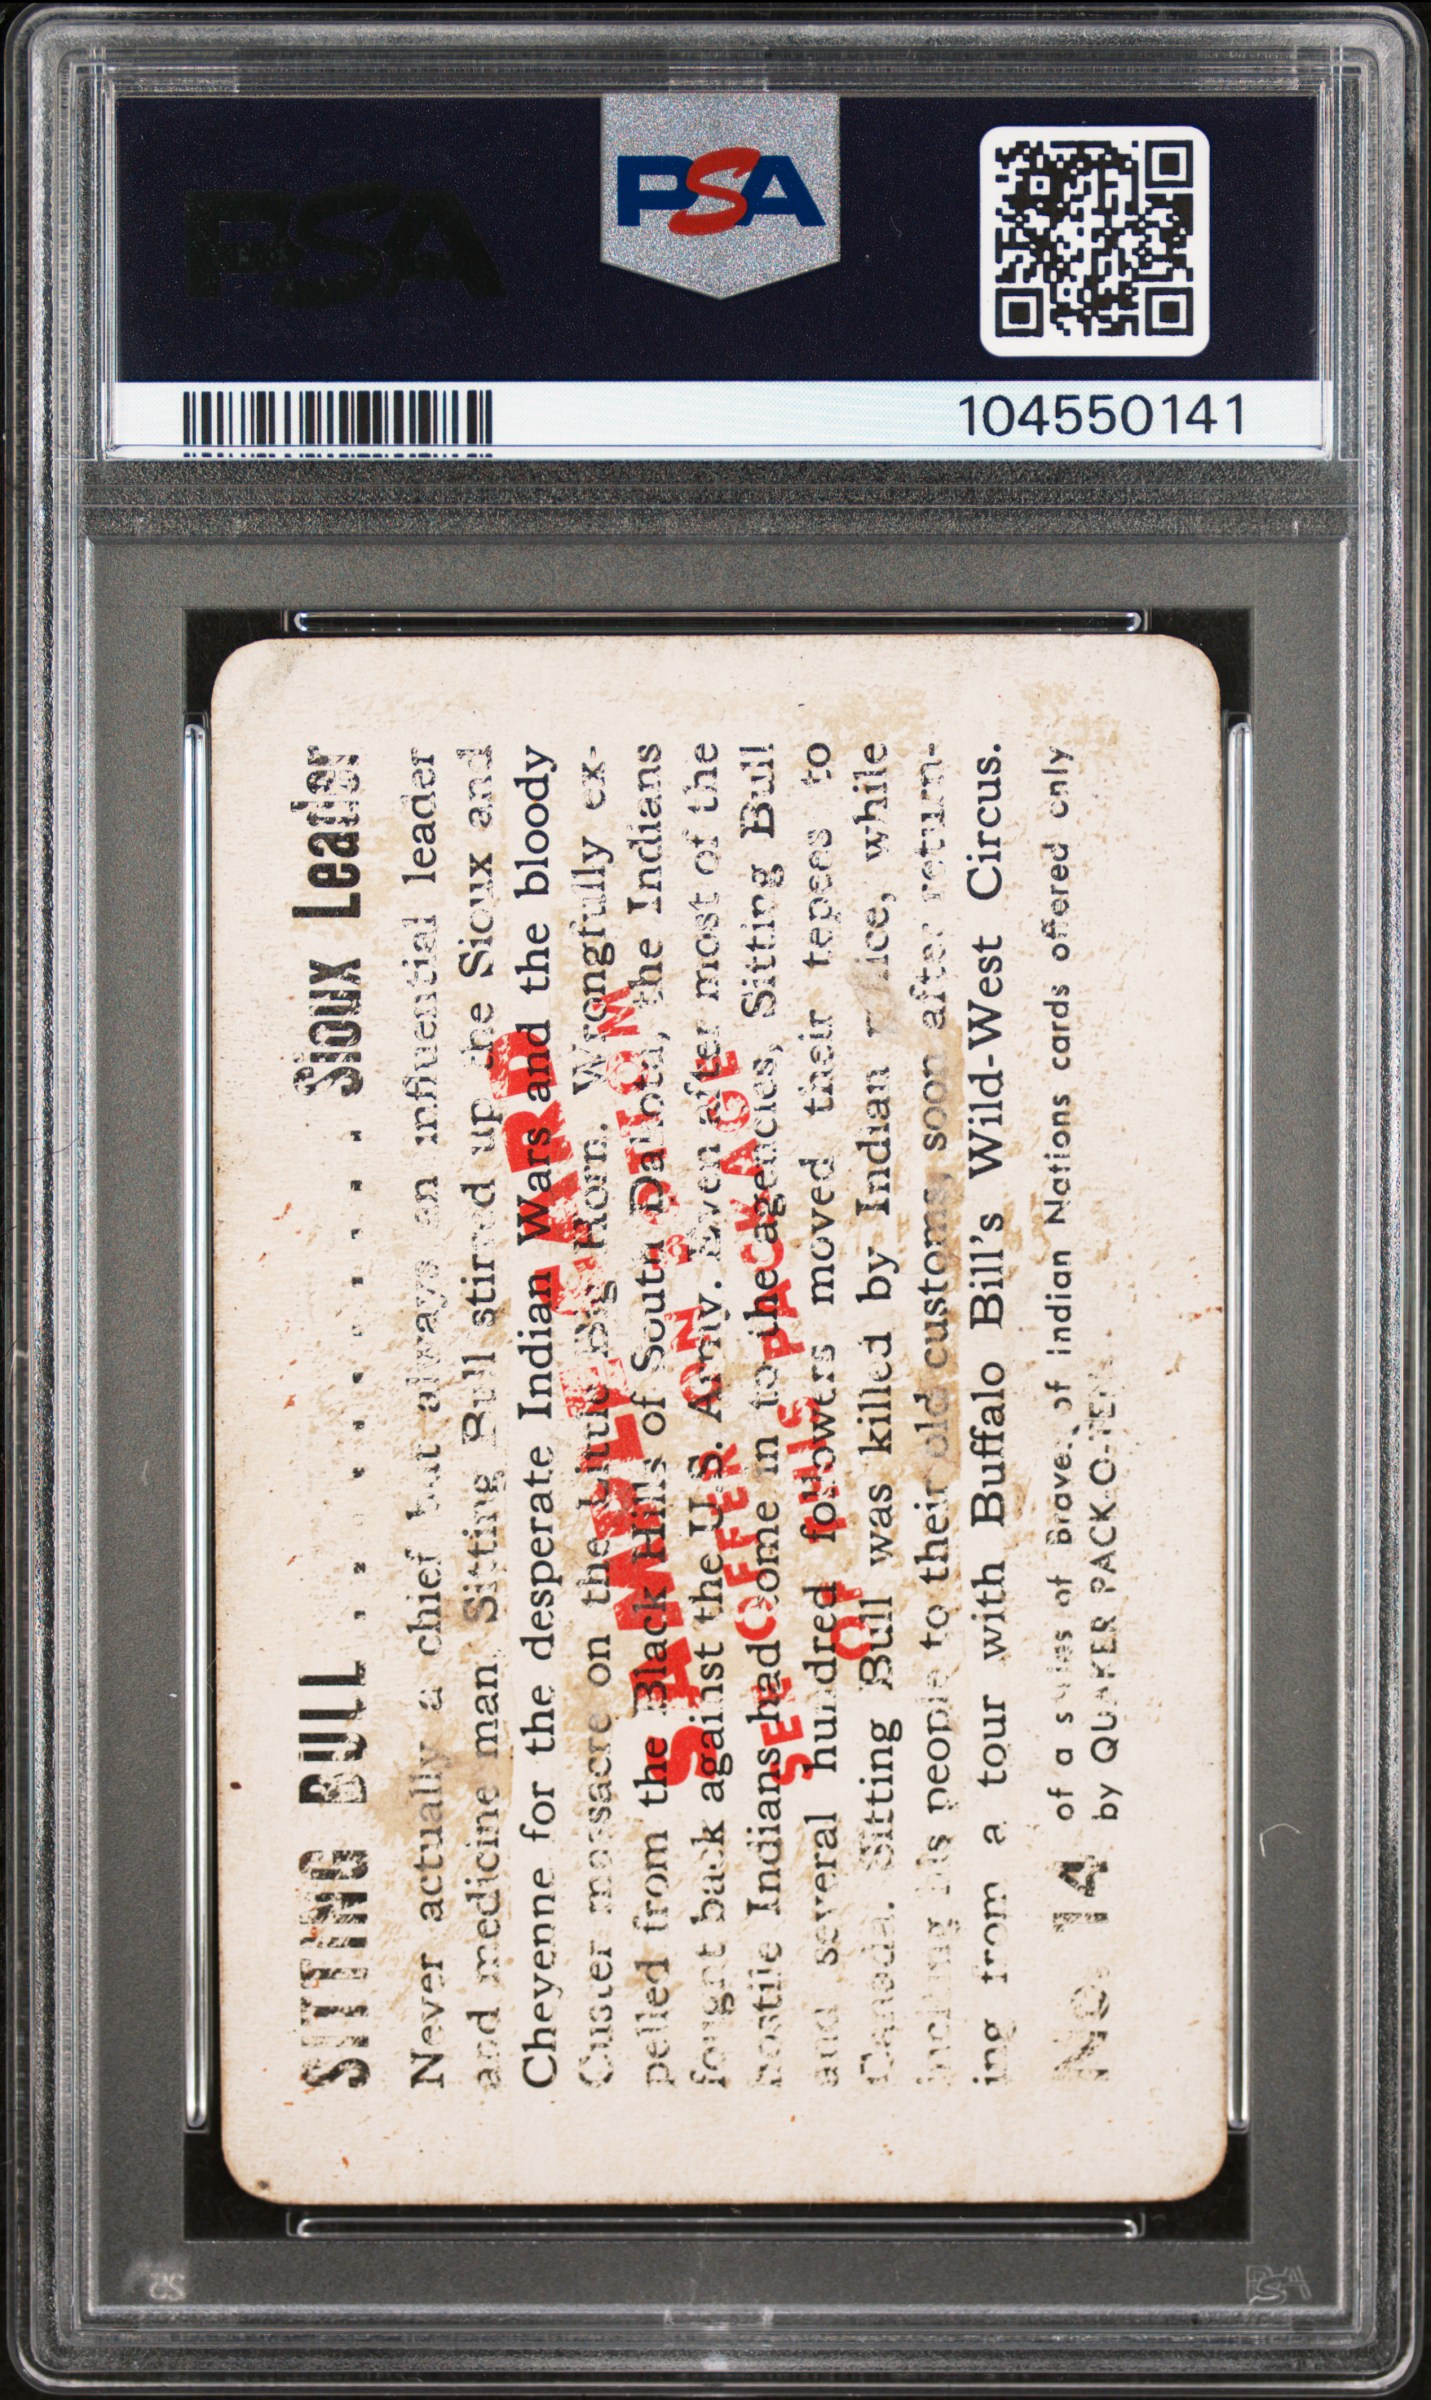 PSA
PSA
104550141
SITTING BULL . . . . . . . . . . Sioux Leader
Never actually a chief but always an influential leader
and medicine man, Sitting Bull stirred up the Sioux and
Cheyenne for the desperate Indian Wars and the bloody
Custer massacre on the Little Big Horn. Wrongfully ex-
pelled from the Black Hills of South Dakota, the Indians
fought back against the U.S. Army. Even after most of the
hostile Indians had come in to the agencies, Sitting Bull
and several hundred followers moved their tepees to
Canada. Sitting Bull was killed by Indian police, while
inciting his people to their old customs, soon after return-
ing from a tour with Buffalo Bill's Wild-West Circus.
No. 14
of a series of Braves of Indian Nations cards offered only
by QUAKER PACK-O-TEN.
SAMPLE CARD
SEE OFFER ON BOTTOM
OF THIS PACKAGE
PSA